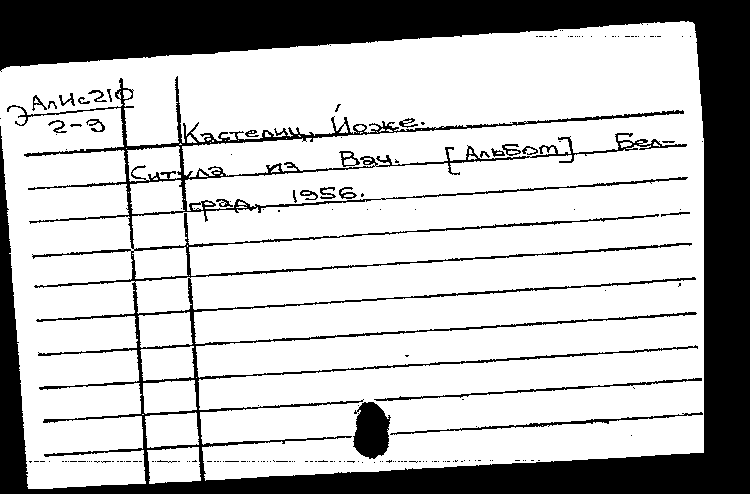 ЭАлИс210
2-9
Кастелиц, Йоже.
Ситула из Вач. [Альбом] Бел=
град, 1956.